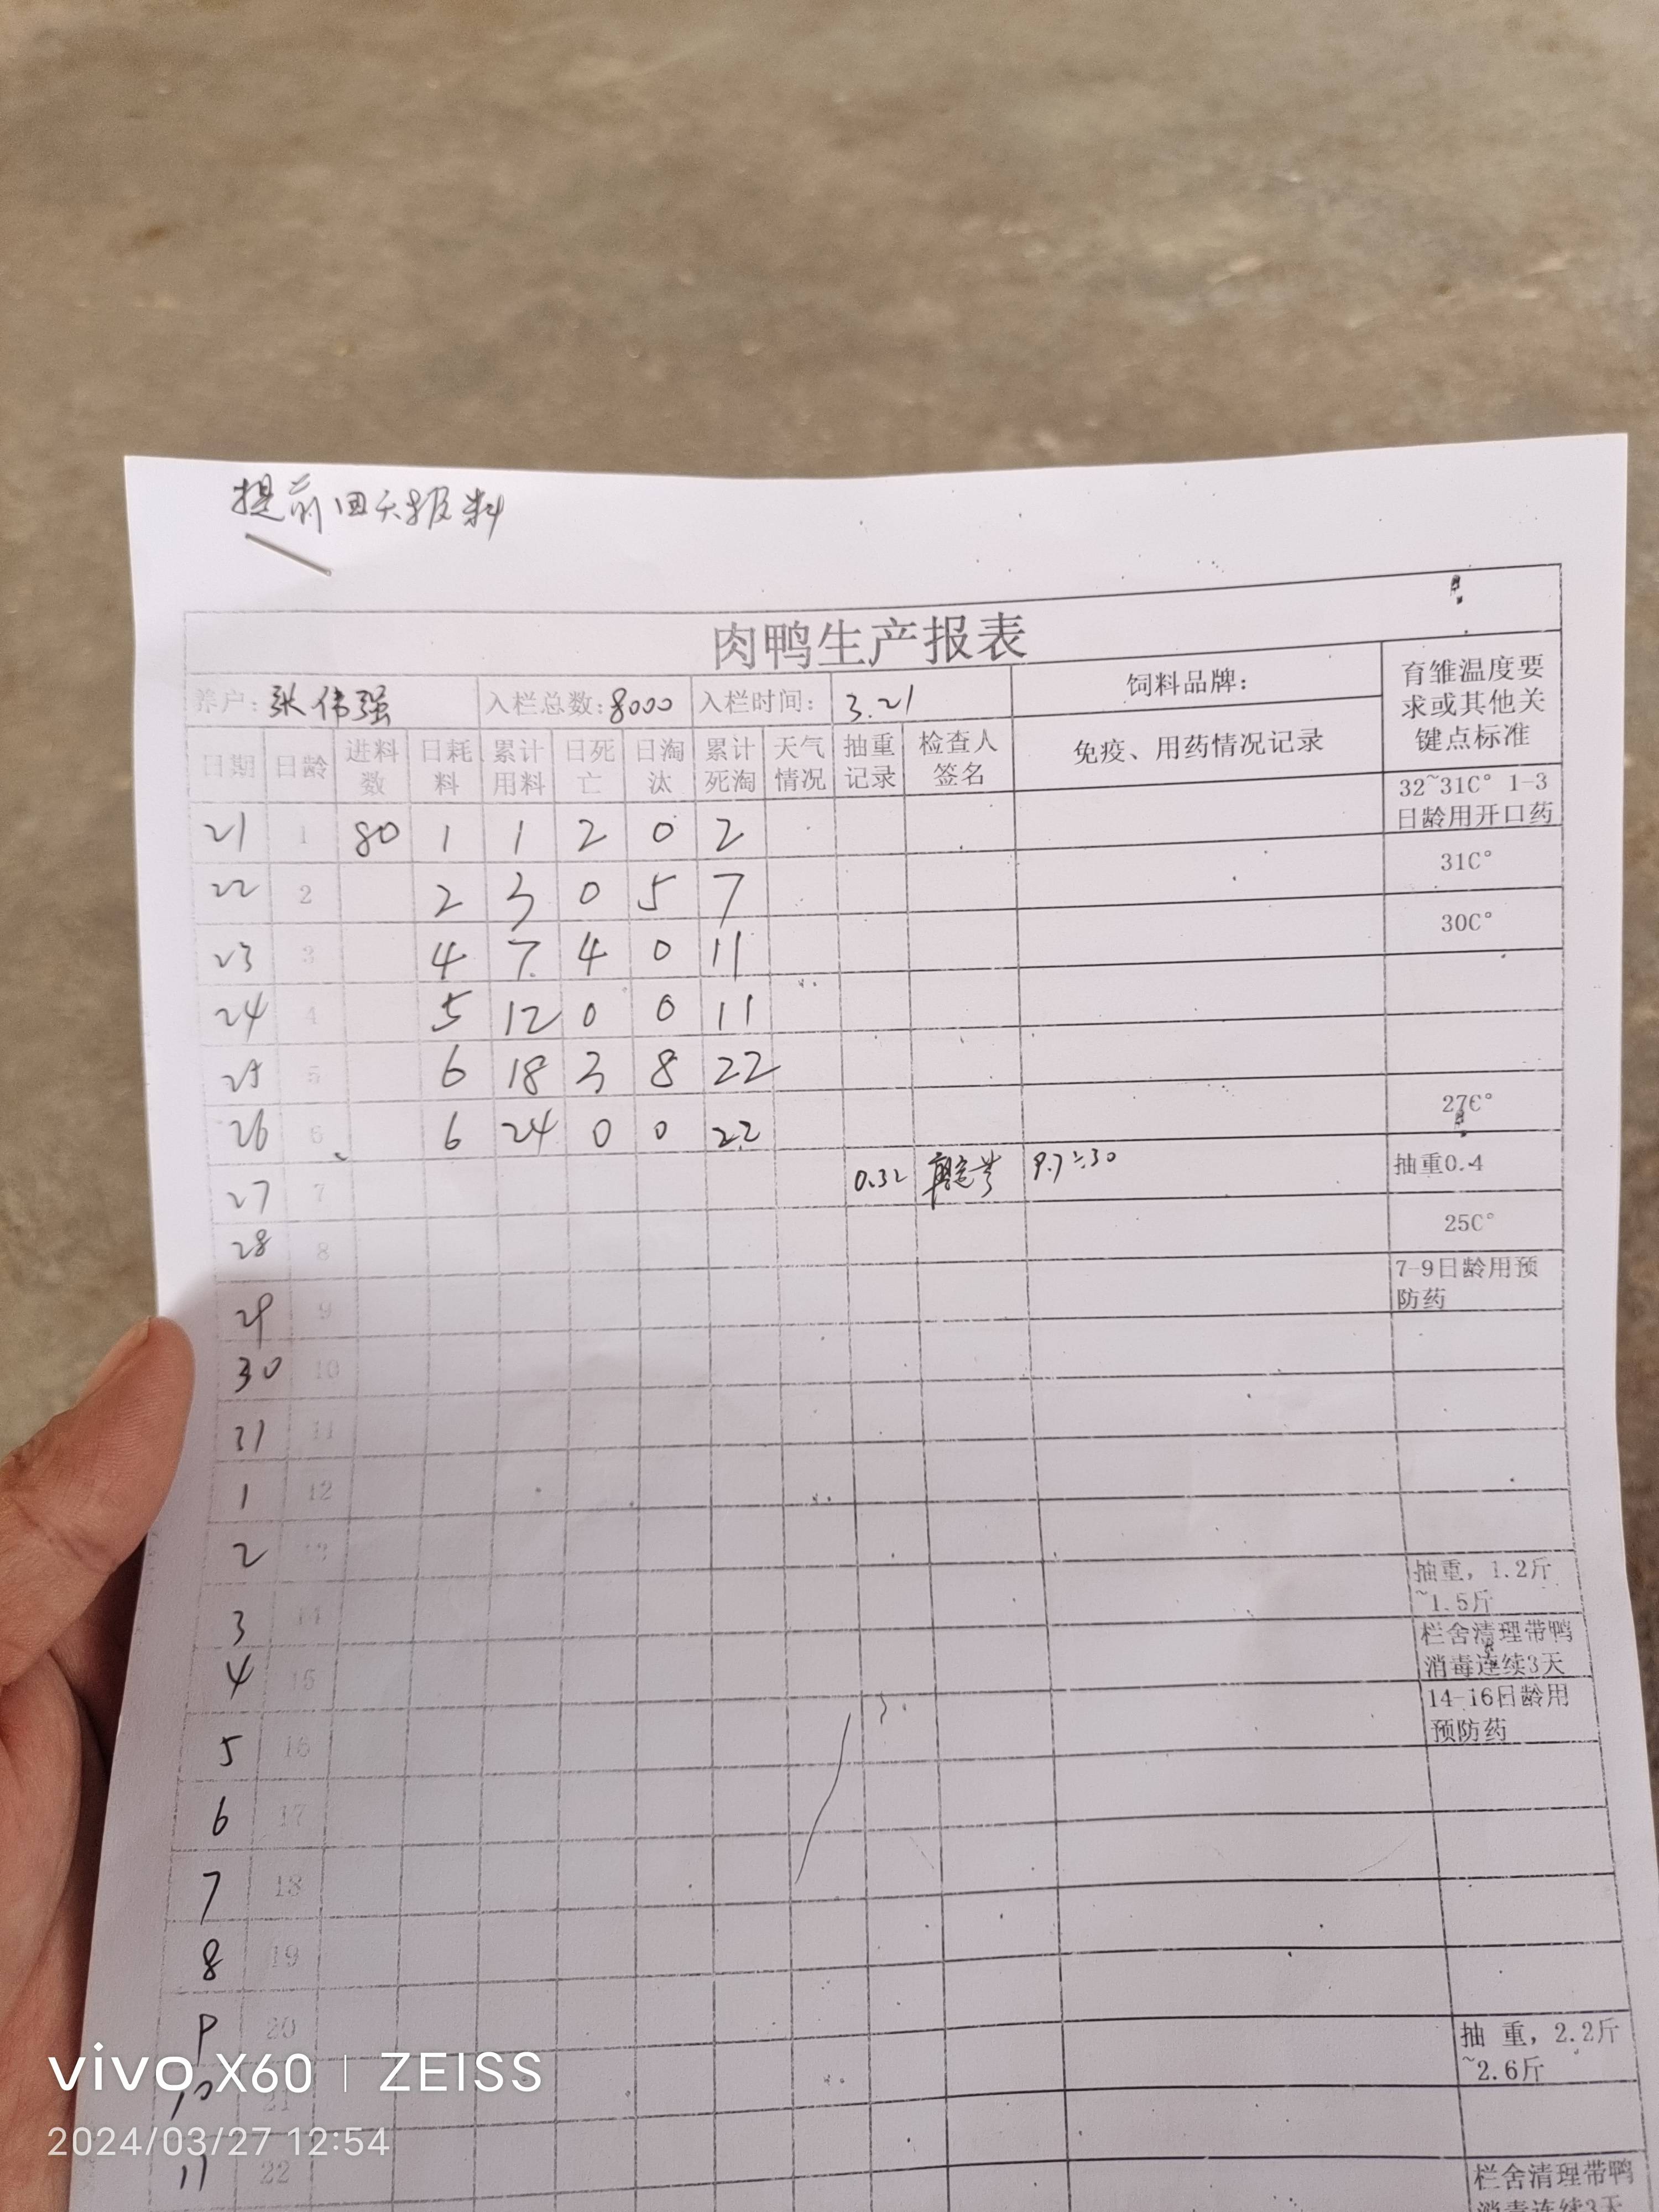 提前四天报料
肉鸭生产报表
养户：张伟强 入栏总数：8000 入栏时间： 3.21 饲料品牌： 育雏温度要求或其他关键点标准
日期 日龄 进料数 日耗料 累计用料 日死亡 日淘汰 累计死淘 天气情况 抽重记录 检查人签名 免疫、用药情况记录
21 1 80 1 1 2 0 2 32~31C° 1-3日龄用开口药
22 2 2 3 0 5 7 31C°
23 3 4 7 4 0 11 30C°
24 4 5 12 0 0 11
25 5 6 18 3 8 22
26 6 6 24 0 0 22 27C°
27 7 0.32 抽重0.4
28 8 25C°
29 9 7-9日龄用预防药
30 10
31 11
1 12
2 13
3 14 抽重，1.2斤~1.5斤
4 15 栏舍清理带鸭消毒连续3天
5 16 14-16日龄用预防药
6 17
7 18
8 19
9 20 抽 重，2.2斤~2.6斤
10 21
11 22 栏舍清理带鸭消毒连续3天
vivo X60 | ZEISS
2024/03/27 12:54